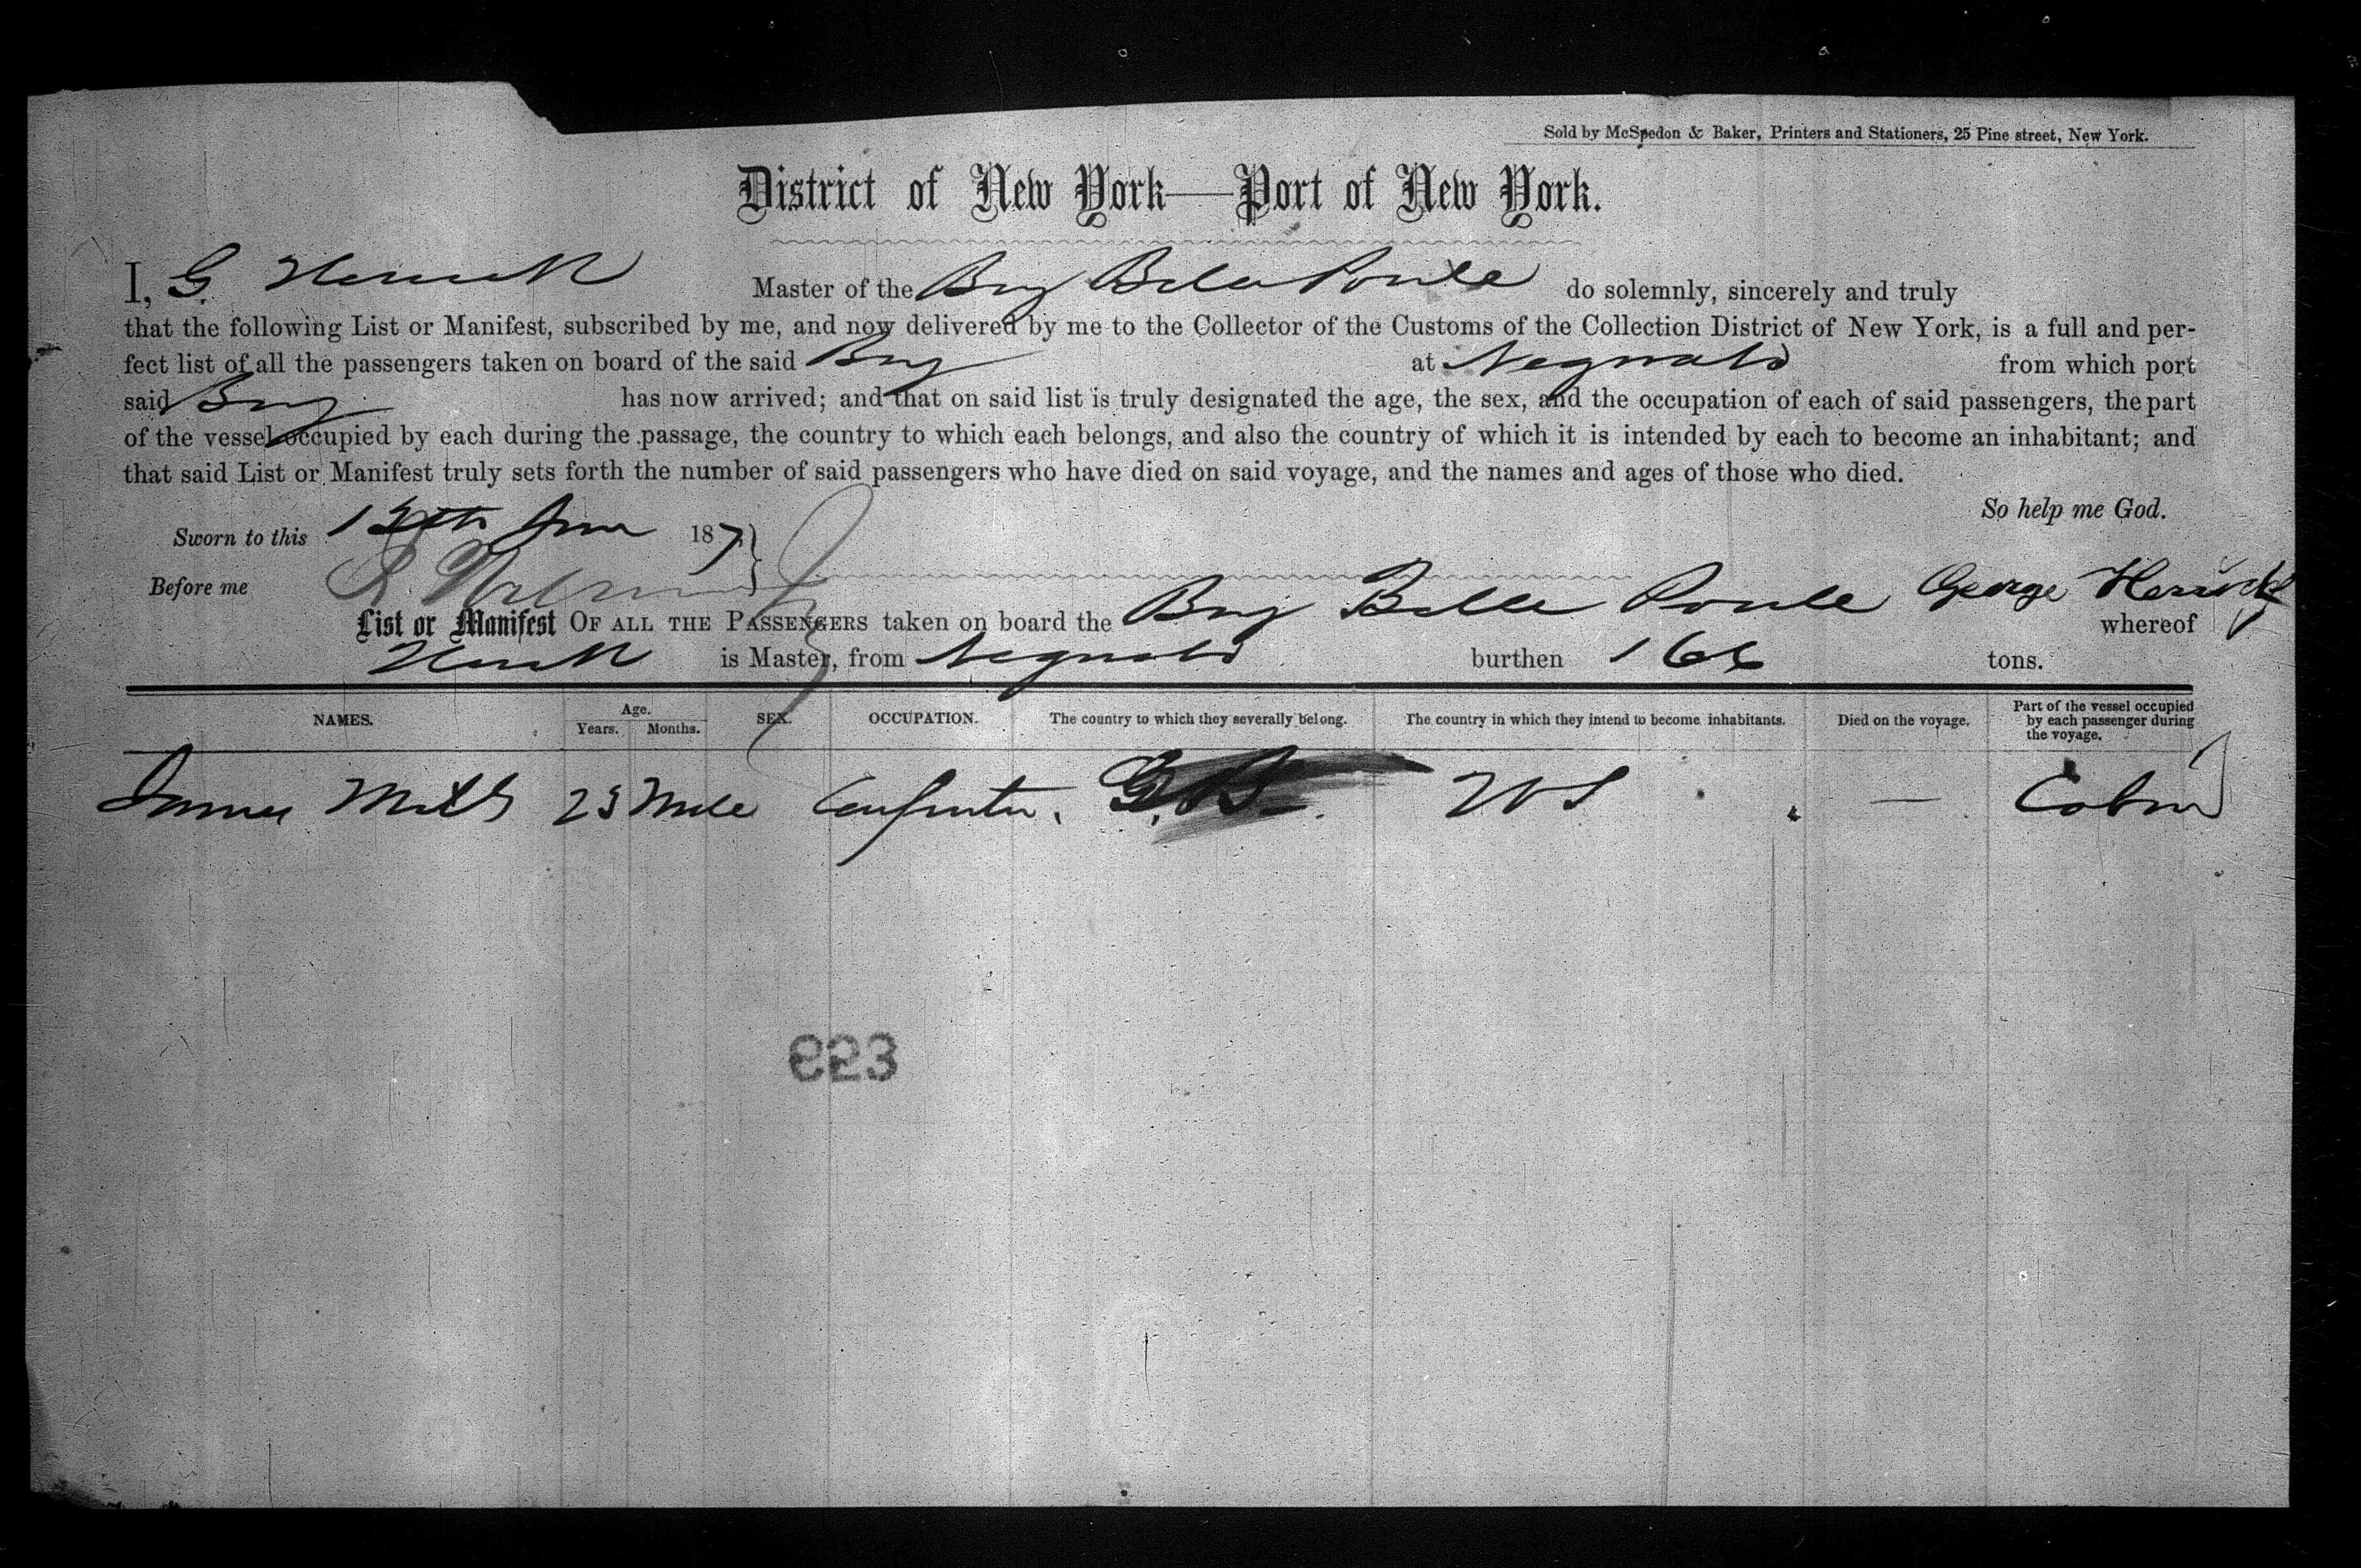 Sold by McSpedon & Baker, Printers and Stationers, 25 Pine street, New York.
District of New York—Port of New York.
I, G. Herrick Master of the Brig Belle Poule do solemnly, sincerely and truly
that the following List or Manifest, subscribed by me, and now delivered by me to the Collector of the Customs of the Collection District of New York, is a full and per-
fect list of all the passengers taken on board of the said Brig at from which port
said Brig has now arrived; and that on said list is truly designated the age, the sex, and the occupation of each of said passengers, the part
of the vessel occupied by each during the passage, the country to which each belongs, and also the country of which it is intended by each to become an inhabitant; and
that said List or Manifest truly sets forth the number of said passengers who have died on said voyage, and the names and ages of those who died.
So help me God.
Sworn to this 187
Before me
George Herrick
List or Manifest OF ALL THE PASSENGERS taken on board the Brig Belle Poule whereof
Herrick is Master, from burthen 166 tons.
NAMES. Age. Years. Months. SEX. OCCUPATION. The country to which they severally belong. The country in which they intend to become inhabitants. Died on the voyage. Part of the vessel occupied by each passenger during the voyage.
James Mills 23 Male Carpenter. G.B. US — Cabin